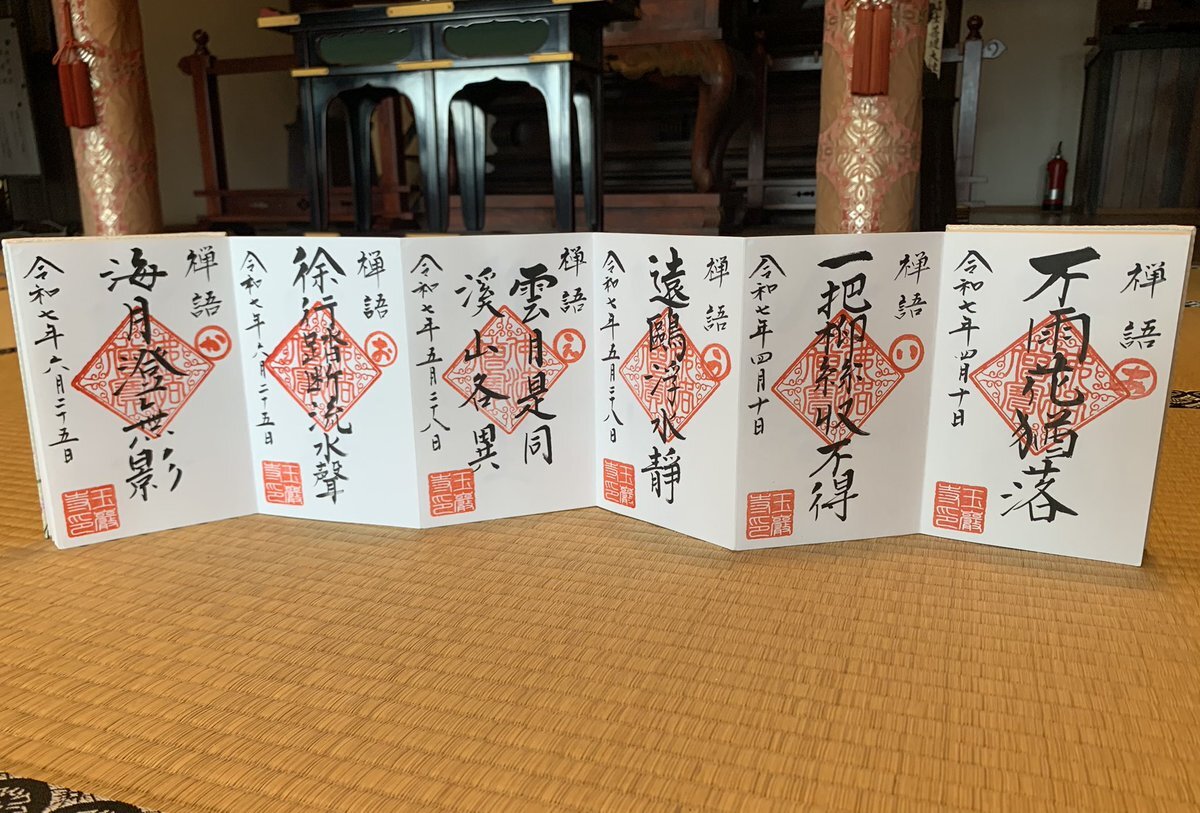 禅語
あ
不雨花猶落
令和七年四月十日
玉巖寺印
禅語
い
一把柳絲収不得
令和七年四月十日
玉巖寺印
禅語
う
遠鷗浮水靜
令和七年五月二十八日
玉巖寺印
禅語
え
雲月是同
溪山各異
令和七年五月二十八日
玉巖寺印
禅語
お
徐行踏断流水聲
令和七年六月二十五日
玉巖寺印
禅語
か
海月澄無影
令和七年六月二十五日
玉巖寺印